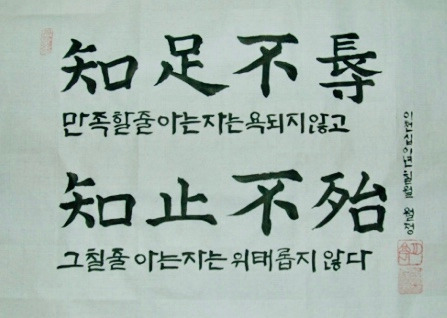 知足不辱
만족할줄아는자는욕되지않고
知止不殆
그칠줄 아는자는 위태롭지 않다
이천십이년 칠월 월정